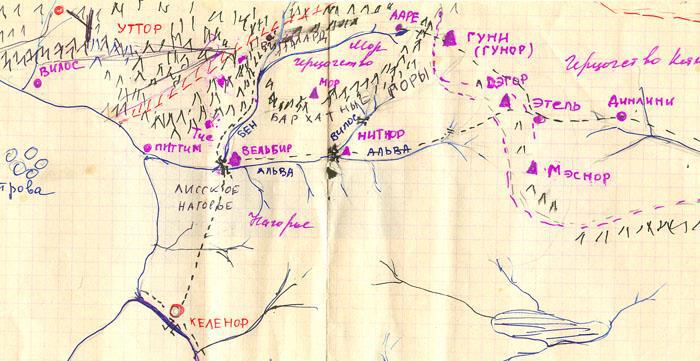 УТТОР
ВИЛОС
ААРЕ
Мор
герцогство
ГУНИ
(ГУНОР)
Герцогство
МОР
БАРХАТНЫЕ ГОРЫ
ДЭГОР
ЭТЕЛЬ
ДИНЛИНИ
Тче
БЕН
ВИЛОС
НИТНОР
ПИТТИМ
ВЕЛЬБИР
АЛЬВА
АЛЬВА
МЭСНОР
ТРОВА
ЛИССКОЕ
НАГОРЬЕ
Нагорье
КЕЛЕНОР